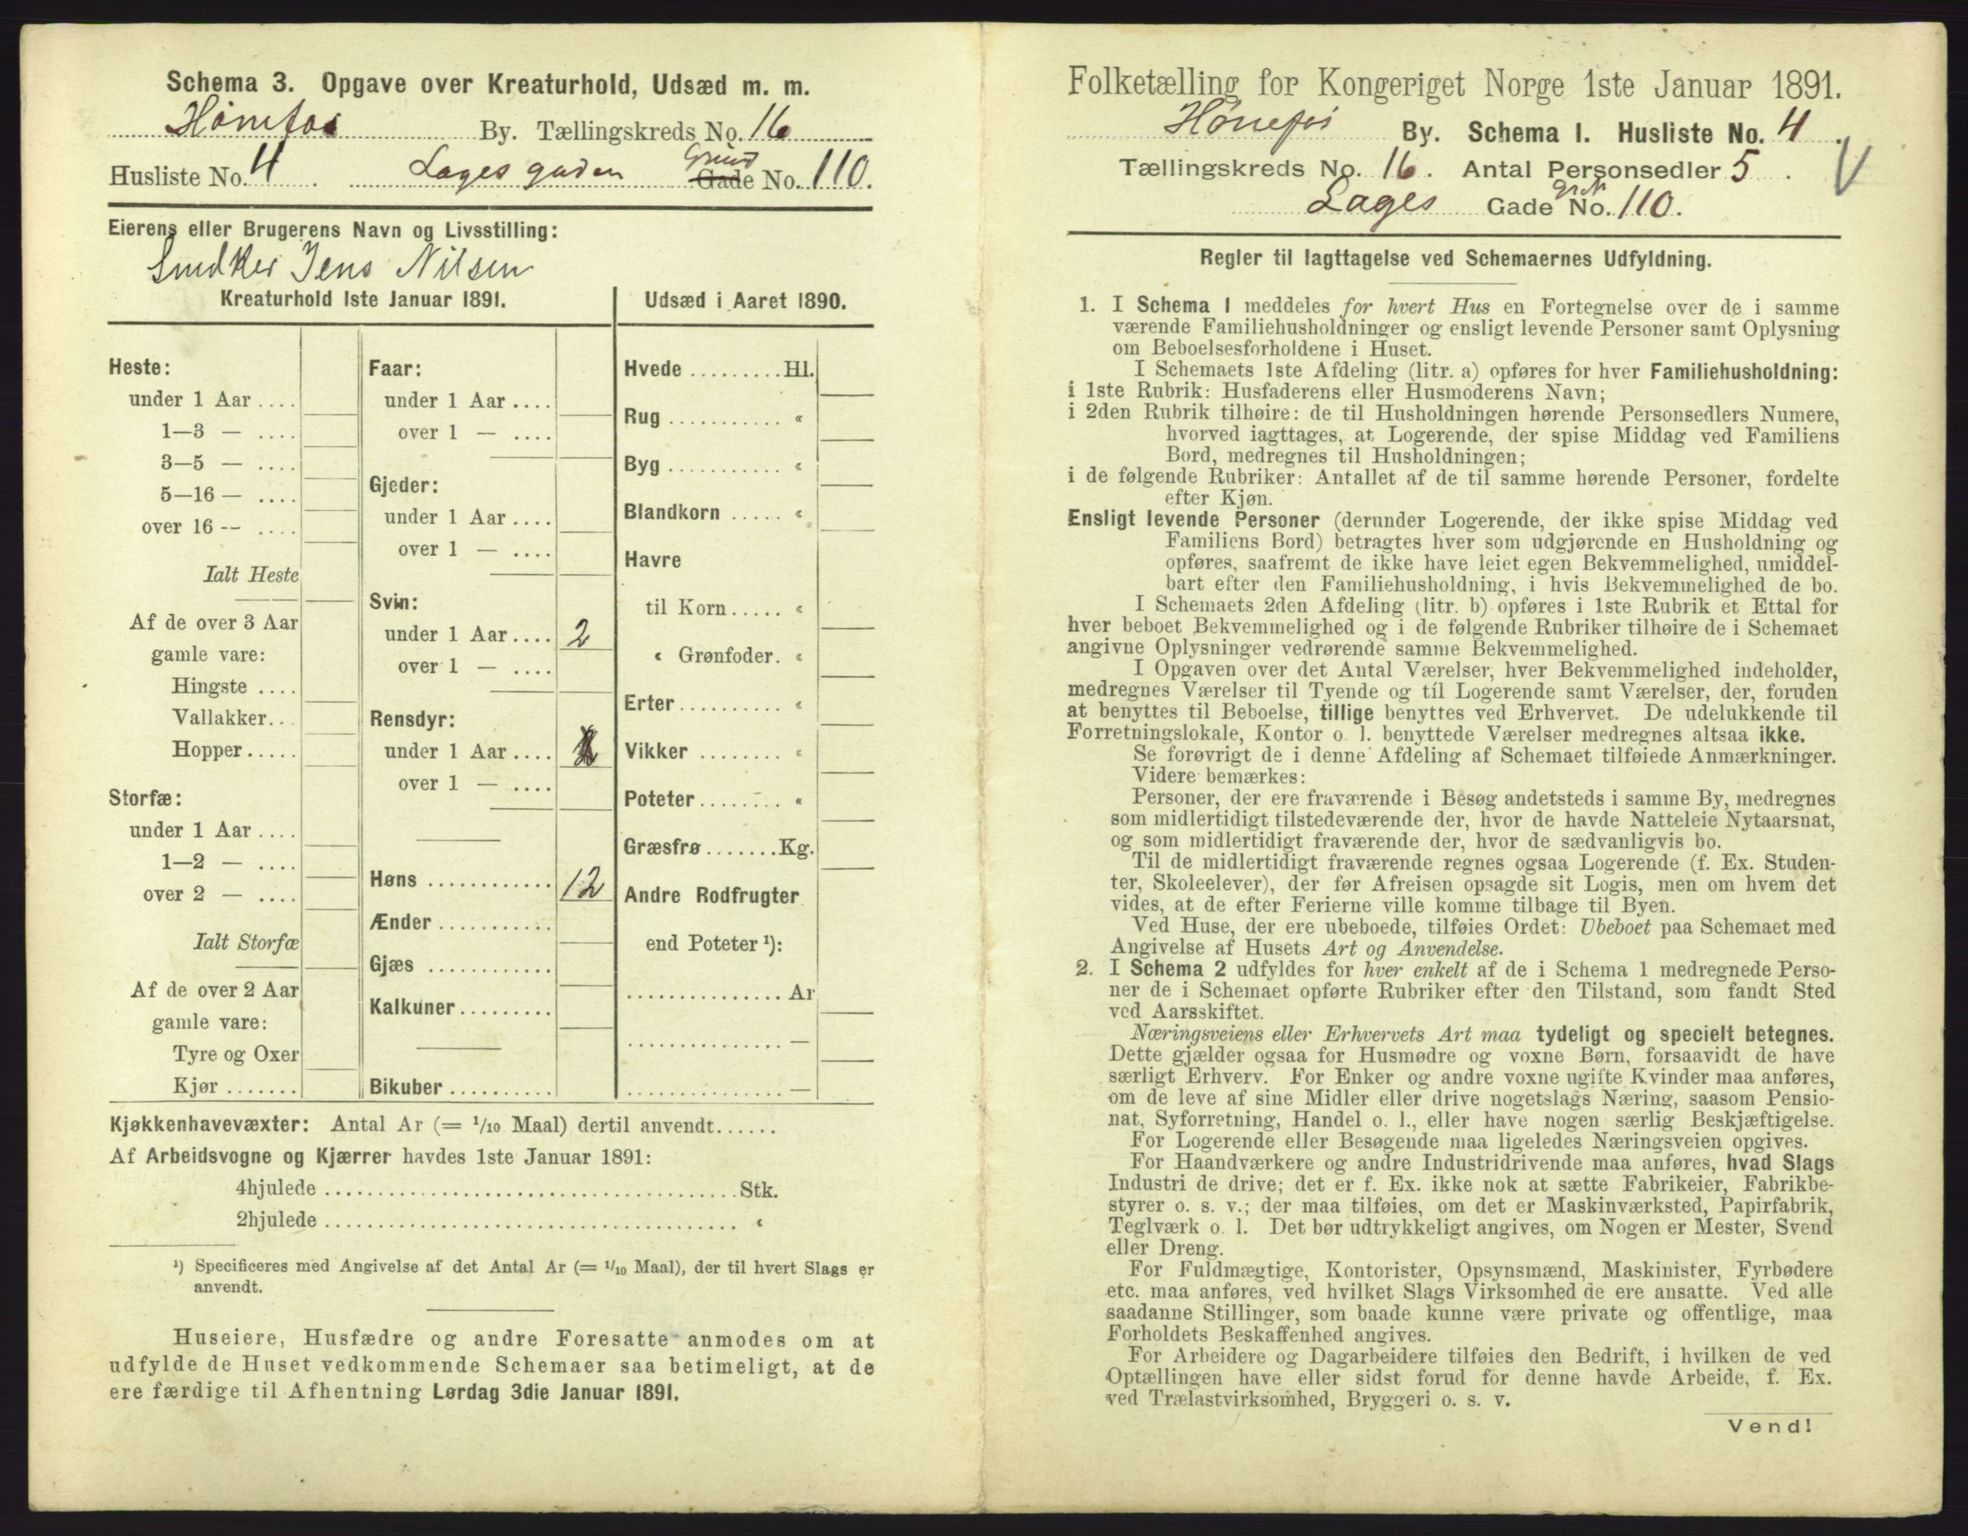 Schema 3. Opgave over Kreaturhold, Udsæd m. m.
Hønefos By. Tællingskreds No. 16
Husliste No. 4 . Lagesgaden Grund Gade No. 110.
Eierens eller Brugerens Navn og Livsstilling:
Snedker Jens Nilsen
Kreaturhold 1ste Januar 1891.
Heste:
under 1 Aar ....
1—3 — ....
3—5 — ....
5—16 — ....
over 16 -- ....
Ialt Heste
Af de over 3 Aar
gamle vare:
Hingste ....
Vallakker...
Hopper.....
Storfæ:
under 1 Aar ....
1—2 — ....
over 2 — ....
Ialt Storfæ
Af de over 2 Aar
gamle vare:
Tyre og Oxer
Kjør .......
Faar:
under 1 Aar ....
over 1 — ....
Gjeder:
under 1 Aar ....
over 1 — ....
Svin:
under 1 Aar .... 2
over 1 — ....
Rensdyr:
under 1 Aar ....
over 1 — ....
Høns ............ 12
Ænder ...........
Gjæs ............
Kalkuner.........
Bikuber ..........
Udsæd i Aaret 1890.
Hvede .........Hl.
Rug ........... «
Byg ........... «
Blandkorn ..... «
Havre
til Korn ..... «
« Grønfoder. «
Erter.......... «
Vikker ........ «
Poteter........ «
Græsfrø .......Kg.
Andre Rodfrugter
end Poteter ¹):
............... Ar
............... —
............... —
Kjøkkenhavevæxter: Antal Ar (= 1/10 Maal) dertil anvendt......
Af Arbeidsvogne og Kjærrer havdes 1ste Januar 1891:
4hjulede ........................................Stk.
2hjulede ........................................ «
¹) Specificeres med Angivelse af det Antal Ar (= 1/10 Maal), der til hvert Slags er
anvendt.
Huseiere, Husfædre og andre Foresatte anmodes om at
udfylde de Huset vedkommende Schemaer saa betimeligt, at de
ere færdige til Afhentning Lørdag 3die Januar 1891.
Folketælling for Kongeriget Norge 1ste Januar 1891.
Hønefos By. Schema I. Husliste No. 4 .
Tællingskreds No. 16 . Antal Personsedler 5 .
Lages Gade Gr.N No. 110.
Regler til Iagttagelse ved Schemaernes Udfyldning.
1. I Schema I meddeles for hvert Hus en Fortegnelse over de i samme
værende Familiehusholdninger og ensligt levende Personer samt Oplysning
om Beboelsesforholdene i Huset.
I Schemaets 1ste Afdeling (litr. a) opføres for hver Familiehusholdning:
i 1ste Rubrik: Husfaderens eller Husmoderens Navn;
i 2den Rubrik tilhøire: de til Husholdningen hørende Personsedlers Numere,
hvorved iagttages, at Logerende, der spise Middag ved Familiens
Bord, medregnes til Husholdningen;
i de følgende Rubriker: Antallet af de til samme hørende Personer, fordelte
efter Kjøn.
Ensligt levende Personer (derunder Logerende, der ikke spise Middag ved
Familiens Bord) betragtes hver som udgjørende en Husholdning og
opføres, saafremt de ikke have leiet egen Bekvemmelighed, umiddel-
bart efter den Familiehusholdning, i hvis Bekvemmelighed de bo.
I Schemaets 2den Afdeling (litr. b) opføres i 1ste Rubrik et Ettal for
hver beboet Bekvemmelighed og i de følgende Rubriker tilhøire de i Schemaet
angivne Oplysninger vedrørende samme Bekvemmelighed.
I Opgaven over det Antal Værelser, hver Bekvemmelighed indeholder,
medregnes Værelser til Tyende og til Logerende samt Værelser, der, foruden
at benyttes til Beboelse, tillige benyttes ved Erhvervet. De udelukkende til
Forretningslokale, Kontor o. l. benyttede Værelser medregnes altsaa ikke.
Se forøvrigt de i denne Afdeling af Schemaet tilføiede Anmærkninger.
Videre bemærkes:
Personer, der ere fraværende i Besøg andetsteds i samme By, medregnes
som midlertidigt tilstedeværende der, hvor de havde Natteleie Nytaarsnat,
og som midlertidigt fraværende der, hvor de sædvanligvis bo.
Til de midlertidigt fraværende regnes ogsaa Logerende (f. Ex. Studen-
ter, Skoleelever), der før Afreisen opsagde sit Logis, men om hvem det
vides, at de efter Ferierne ville komme tilbage til Byen.
Ved Huse, der ere ubeboede, tilføies Ordet: Ubeboet paa Schemaet med
Angivelse af Husets Art og Anvendelse.
2. I Schema 2 udfyldes for hver enkelt af de i Schema 1 medregnede Perso-
ner de i Schemaet opførte Rubriker efter den Tilstand, som fandt Sted
ved Aarsskiftet.
Næringsveiens eller Erhvervets Art maa tydeligt og specielt betegnes.
Dette gjælder ogsaa for Husmødre og voxne Børn, forsaavidt de have
særligt Erhverv. For Enker og andre voxne ugifte Kvinder maa anføres,
om de leve af sine Midler eller drive nogetslags Næring, saasom Pensio-
nat, Syforretning, Handel o. l., eller have nogen særlig Beskjæftigelse.
For Logerende eller Besøgende maa ligeledes Næringsveien opgives.
For Haandværkere og andre Industridrivende maa anføres, hvad Slags
Industri de drive; det er f. Ex. ikke nok at sætte Fabrikeier, Fabrikbe-
styrer o. s. v.; der maa tilføies, om det er Maskinværksted, Papirfabrik,
Teglværk o. l. Det bør udtrykkeligt angives, om Nogen er Mester, Svend
eller Dreng.
For Fuldmægtige, Kontorister, Opsynsmænd, Maskinister, Fyrbødere
etc. maa anføres, ved hvilket Slags Virksomhed de ere ansatte. Ved alle
saadanne Stillinger, som baade kunne være private og offentlige, maa
Forholdets Beskaffenhed angives.
For Arbeidere og Dagarbeidere tilføies den Bedrift, i hvilken de ved
Optællingen have eller sidst forud for denne havde Arbeide, f. Ex.
ved Trælastvirksomhed, Bryggeri o. s. v.
Vend!